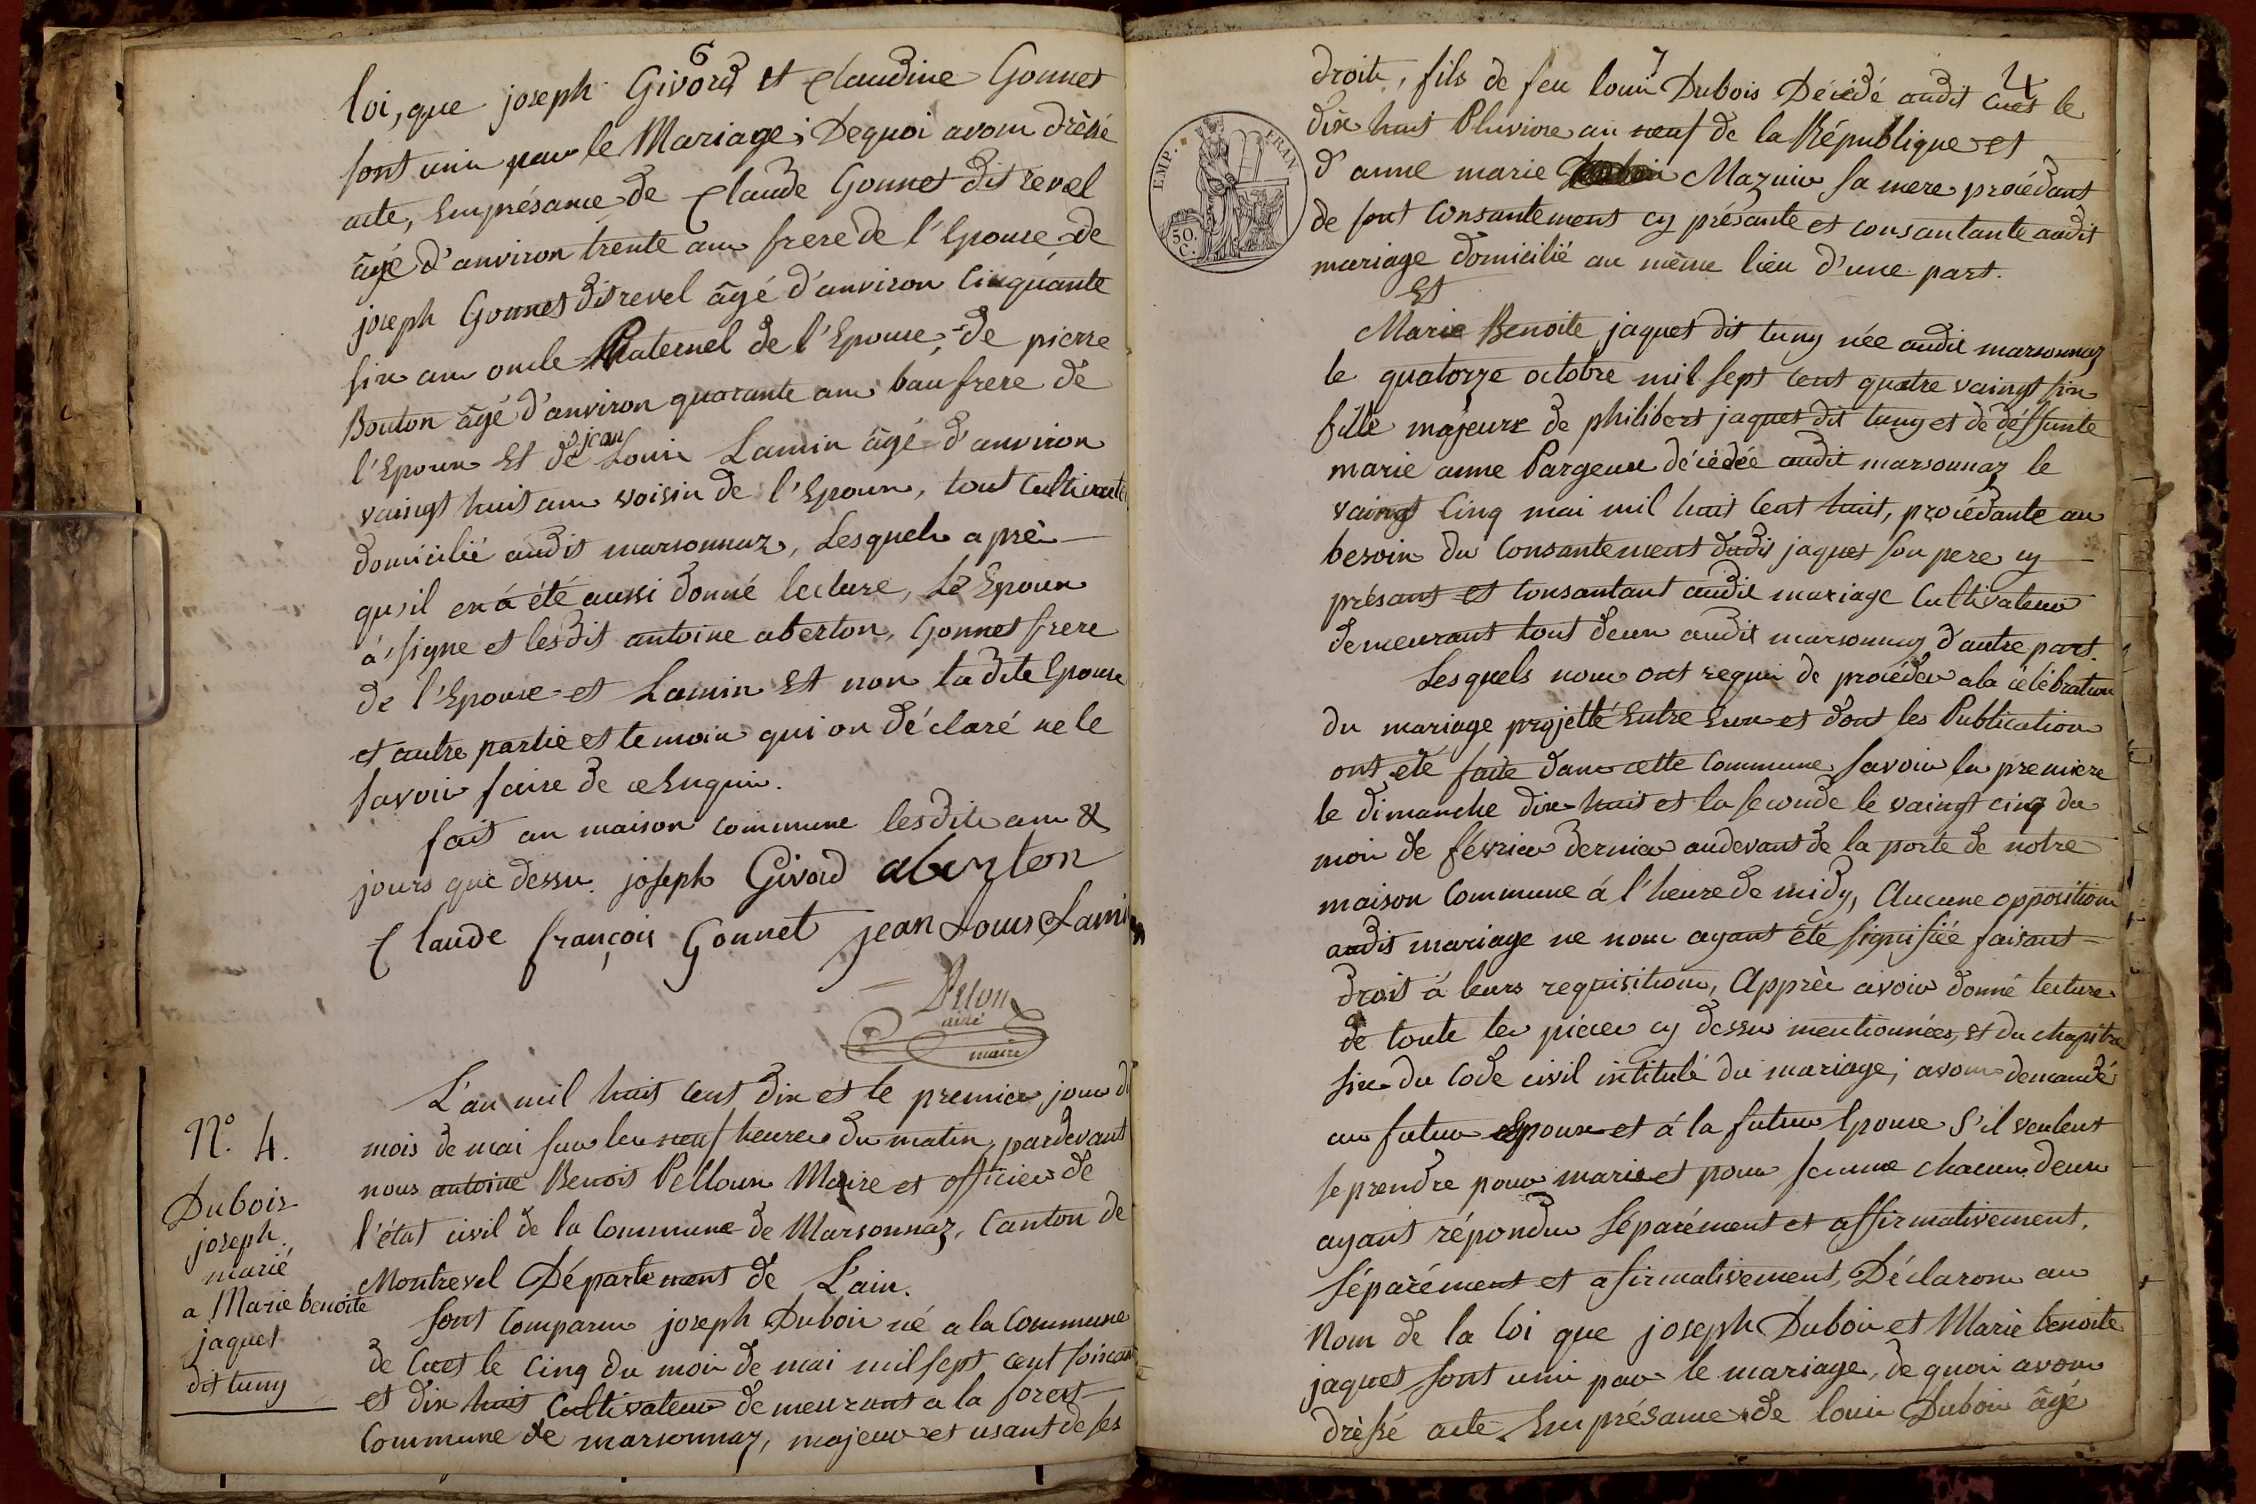 6
loi, que joseph Givord et Claudine Gonnet
sont unis par le Mariage; De quoi avons drèssé
acte, En présance de Claude Gonnet dit revel
âgé d'anviron trente ans frere de l'Epouse, de
joseph Gonnet dit revel âgé d'anviron Cinquante
six ans oncle Paternel de l'Epouse, de pierre
Bouton âgé d'anviron quarante ans bau frere de
l'Epoux Et de jean Louis Lamin âgé d'anviron
vaingt huit ans voisin de l'Epoux, tout Cultivateur
domicilié audit marsonnaz, Lesquels aprè
qu'il en á été aussi donné lecture, Le Epoux
á signe et lesdit antoine aberton, Gonnet frere
de l'Epouse et Lamin Et non ladite Epouse
et autre partie et temoin qui on déclaré ne le
savoir faire de ce Enquis.
fait an maison commune lesdits an &
jours que dessus. joseph Givord aberton
Claude françois Gonnet jean Louis Lamin
Pelou
ainé
maire
N.o 4.
Dubois
joseph.
marié
a Marie benoite
jaquet
dit tuny
L'an mil huit cent dix et le premier jour du
mois de mai sur les neuf heures du matin, pardevant
nous antoine Benoit Pelloux Maire et officier de
l'état civil de la Commune de Marsonnaz, Canton de
Montrevel Département de L'ain.
sont Comparus joseph Dubois né a la Commune
de Cuet le Cinq du mois de mai mil sept cent soixante
et dix huit Cultivateur demeurant a la forest
Commune de marsonnaz, majeur et usant de ses
7
4
droits, fils de feu louis Dubois Décédé audit Cuet le
dix huit Pluviose an neuf de la République et
d'anne marie Mazuir sa mere procédant
de sont Consantement cy présante et consantante audit
mariage domicilié au même lieu d'une part.
Et
EMP. FRAN.
50.
C.
Marie Benoite jaquet dit tuny née audit marsonnaz
le quatorze octobre mil sept cent quatre vaingt six
fille majeure de philibert jaquet dit tuny et de déffunte
marie anne Pargeux décédée audit marsonnaz le
vaingt Cinq mai mil huit Cent huit, procédante au
besoin du Consantement dudit jaquet son pere cy
présant et Consantant audit mariage Cultivateur
demeurant tout deux audit marsonnaz d'autre part.
Lesquels nous ont requis de procéder a la célébration
du mariage projetté Entre Eux et dont les Publication
ont été faite dans cette Commune, savoir la premiere
le dimanche dix huit et la seconde le vaingt cinq du
mois de février dernier audevant de la porte de notre
maison Commune á l'heure de midy, Aucune opposition
audit mariage ne nous ayant été signifiée faisant
droit á leurs requisition, Apprès avoir donné lecture
de toute les pièces cy dessus mentionnées, et du chapitre
six du Code civil intitulé du mariage; avons demandé
au futur Epoux et á la future Epouse S'il veulent
se prendre pour marie et pour femme chacun deux
ayant répondu séparément et affirmativement,
séparément et afirmativement, Déclarons au
Nom de la loi que joseph Dubois et Marie benoite
jaquet sont uni par le mariage, de quoi avons
drèssé acte En présance de louis Dubois âgé